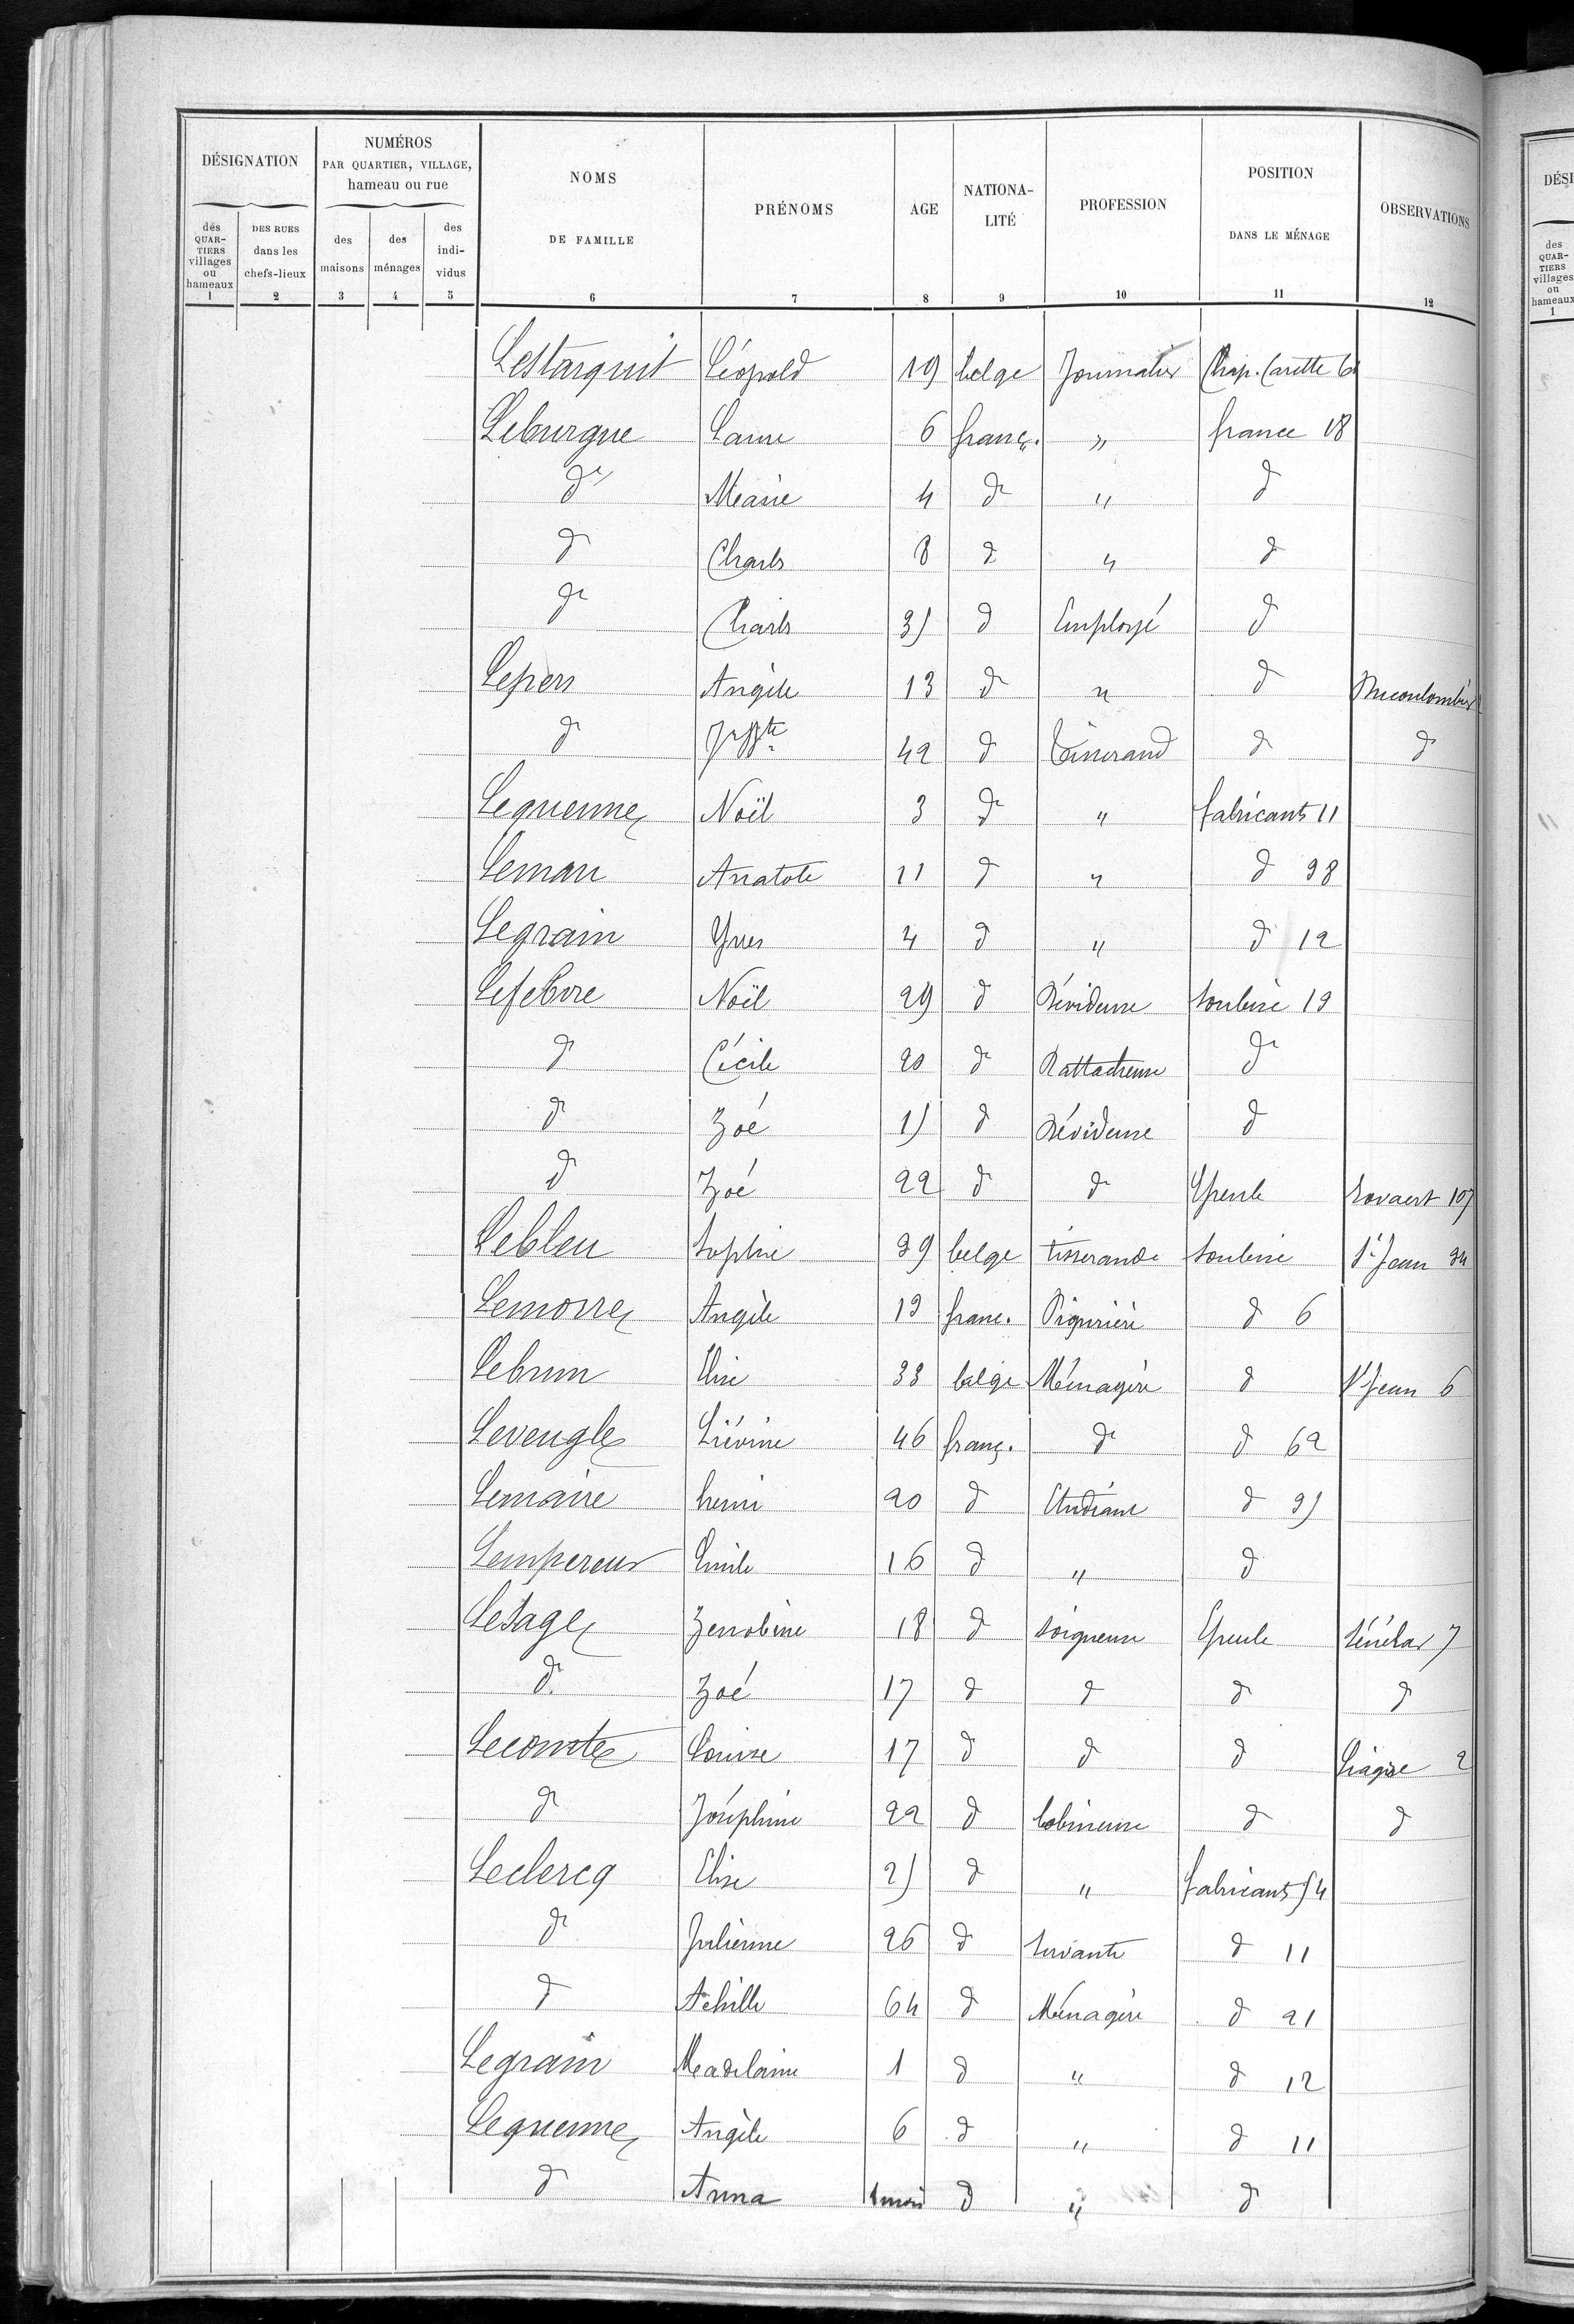 DÉSIGNATION NUMÉROS PAR QUARTIER, VILLAGE, hameau ou rue NOMS DE FAMILLE PRÉNOMS AGE NATIONALITÉ PROFESSION POSITION DANS LE MÉNAGE OBSERVATIONS
des QUARTIERS villages ou hameaux DES RUES dans les chefs-lieux des maisons des ménages des individus
1 2 3 4 5 6 7 8 9 10 11 12
Lestarquit Léopold 19 belge Journalier Chap. Carette 6
Leburgue Laure 6 franç. " france 18
d° Marie 4 d° " d
d Charles 8 d " d
d° Charles 3) d Employé d
Lepers Angèle 13 d " d
d 42 d Tisserand d d
Lequenne Noël 3 d " fabricants 11
Leman Anatole 11 d " d 98
Legrain Yves 4 d " d 12
Lefebvre Noël 29 d Dévideuse Soubise 19
d Cécile 20 d Rattacheuse d
d Zoé 1) d Dévideuse d
d Zoé 22 d d Epeule Rovaert 107
Lebleu Sophie 39 belge tisserande Soubise St Jean 34
Lemorre Angèle 19 franc. Piqurière d 6
Lebrun Elise 33 belge Ménagère d St Jean 6
Leveugle Liévine 46 franç. d d 62
Lemaire henri 20 d Etudiant d 9)
Lempereur Emile 16 d " d
Lesage Zenobine 18 d Soigneuse Epeule 7
d Zoé 17 d d d d
Lecomte Louise 17 d d d 2
d Joséphine 22 d bobineuse d d
Leclercq Elise 2) d " fabricants 54
d Julienne 26 d Servante d 11
d Achille 64 d Ménagère d 21
Legrain Madelaine 1 d " d 12
Lequenne Angèle 6 d " d 11
d Anna 1 mois d " d
DÉSI
des QUARTIERS villages ou hameaux
1